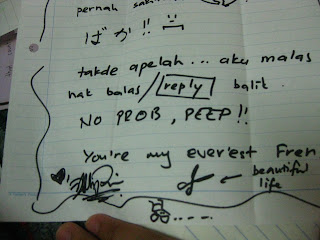 pernah
ばか!!
takde apelah... aku malas
nak balas / reply balik.
NO PROB, PEEP!!
You're my ever'est Fren
beautiful
life